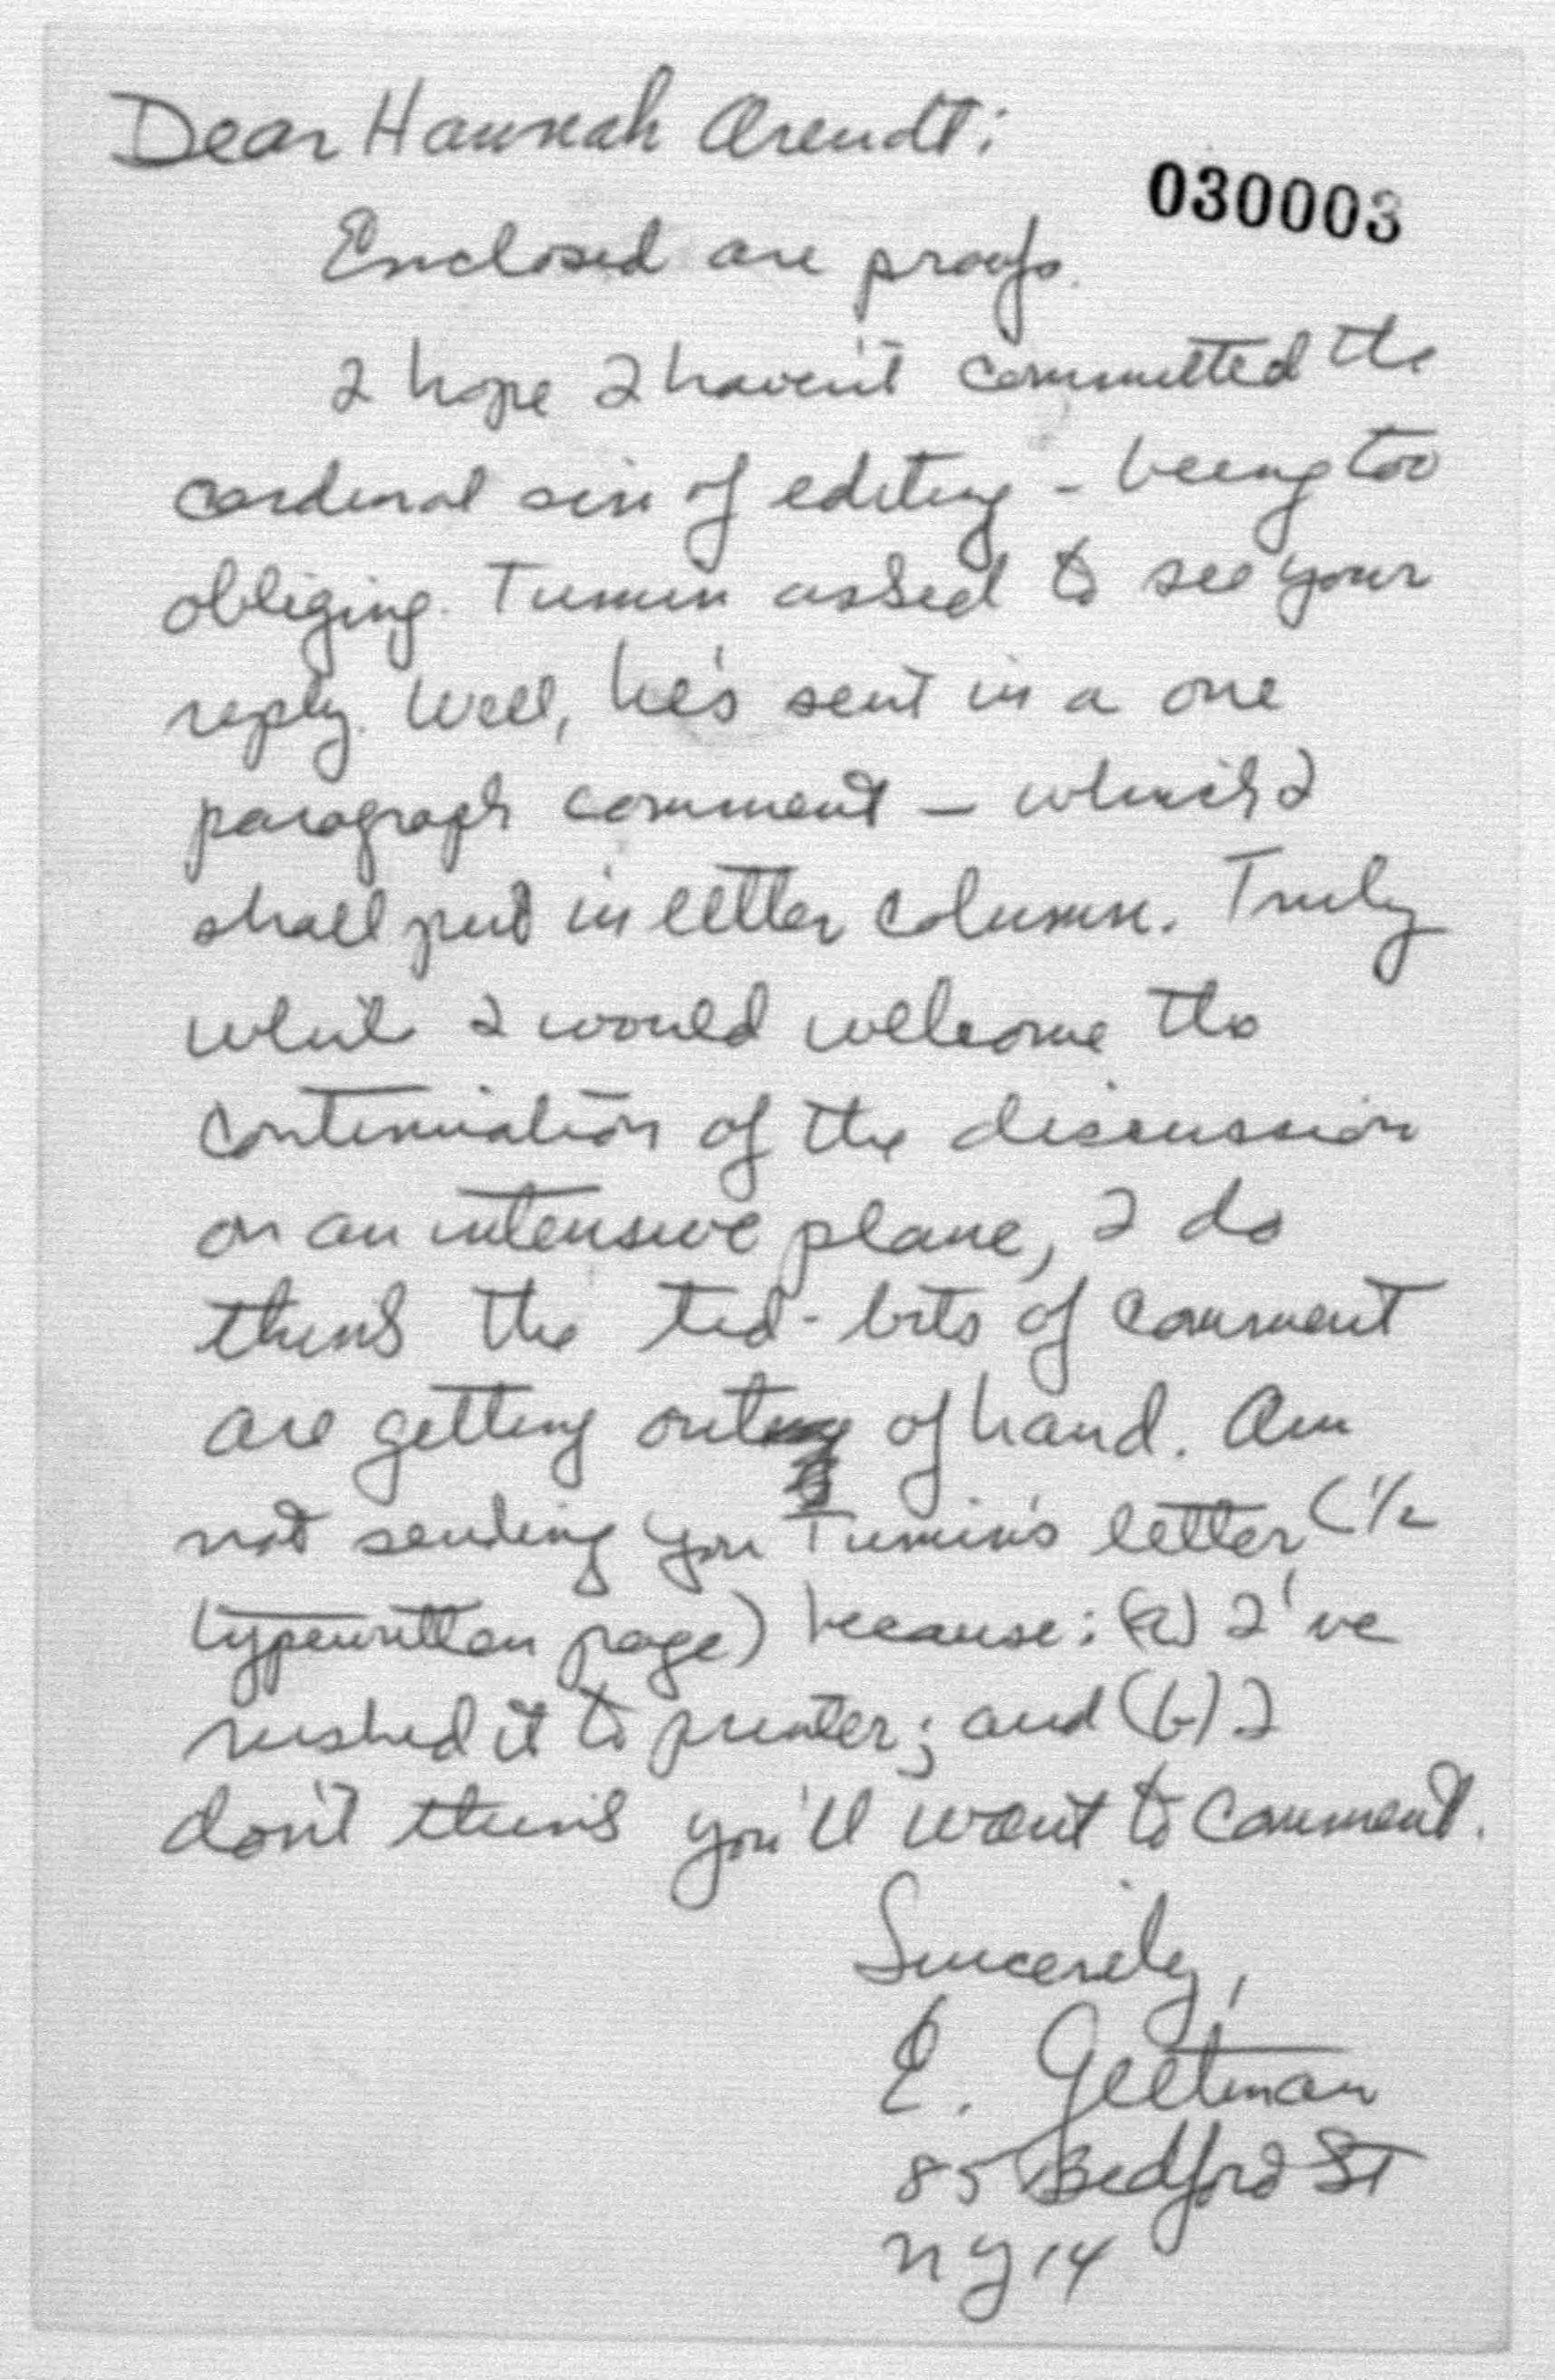 Dear Hannah Arendt:
030003
Enclosed are proofs.
I hope I haven't committed the
cardinal sin of editing - being too
obliging. Tumin asked to see your
reply. Well, he's sent in a one
paragraph comment - which I
shall put in letter column. Truly
while I would welcome the
continuation of the discussion
on an intensive plane, I do
think the tid-bits of comment
are getting out of hand. Am
not sending you Tumin's letter (1/2
typewritten page) because: (a) I've
rushed it to printer; and (b) I
don't think you'll want to comment.
Sincerely,
E. Geltman
85 Bedford St
NY 14